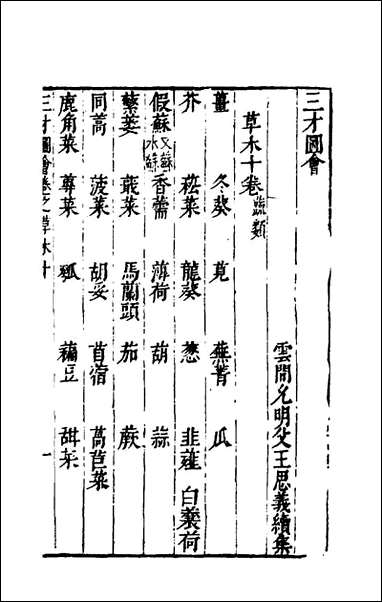 三才圖會
雲間允明父王思義續集
草木十卷 蔬類
薑 冬葵 莧 蕪菁 瓜
芥 菘菜 龍葵 葱 韭薤 白蘘荷
假蘇 又蘇水蘇 香薷 薄荷 葫 蒜
蘩蔞 蕺菜 馬蘭頭 茄 蕨
同蒿 菠菜 胡荽 苜宿 萵苣菜
鹿角菜 蓴菜 瓠 藊豆 甜菜
三才圖會卷之草木十 一